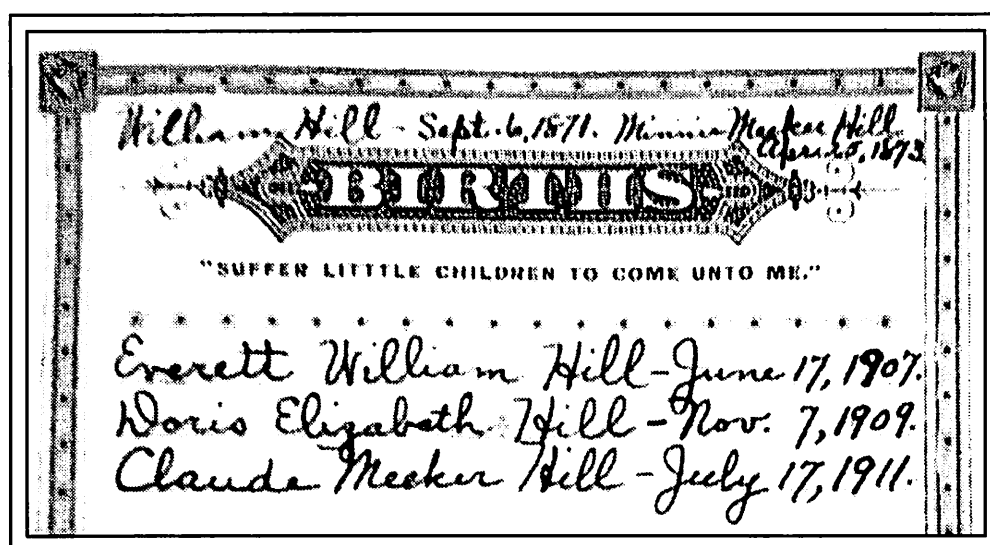 William Hill - Sept. 6, 1871. Minnie Meeker Hill
April 25, 1873
BIRTHS
"SUFFER LITTTLE CHILDREN TO COME UNTO ME."
Everett William Hill - June 17, 1907.
Doris Elizabeth Hill - Nov. 7, 1909.
Claude Meeker Hill - July 17, 1911.